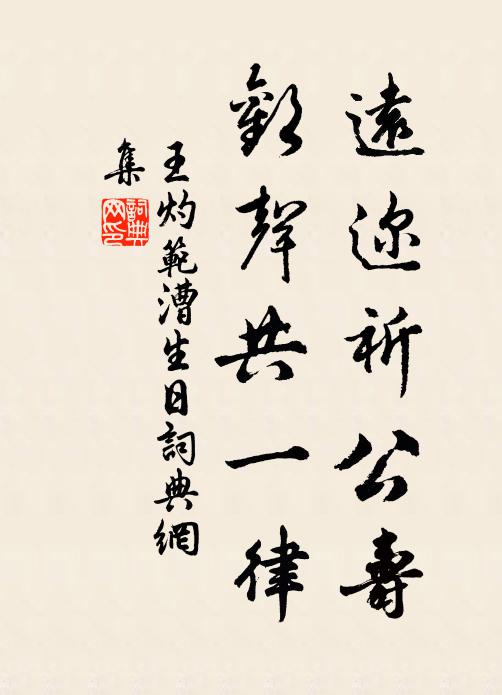 遠迩祈公壽
歡聲共一律
王灼範漕生日詞典網
集
詞典
网印